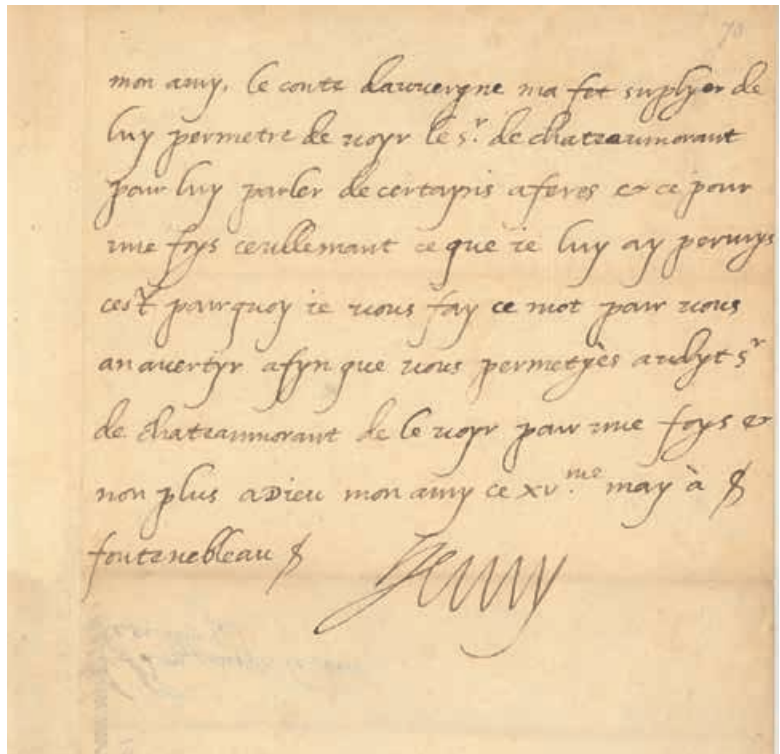 70
mon amy, le conte dauuergne ma fet suplyer de
luy permetre de uoyr le sr. de chateaumorant
pour luy parler de certayns aferes & ce pour
une foys ceullemant ce que ie luy ay permys
cest pourquoy ie uous fay ce mot pour uous
an auertyr afyn que uous permetyès audyt sr
de chateaumorant de le uoyr pour une foys &
non plus adieu mon amy ce xv.me may à $
fontenebleau $
Henry